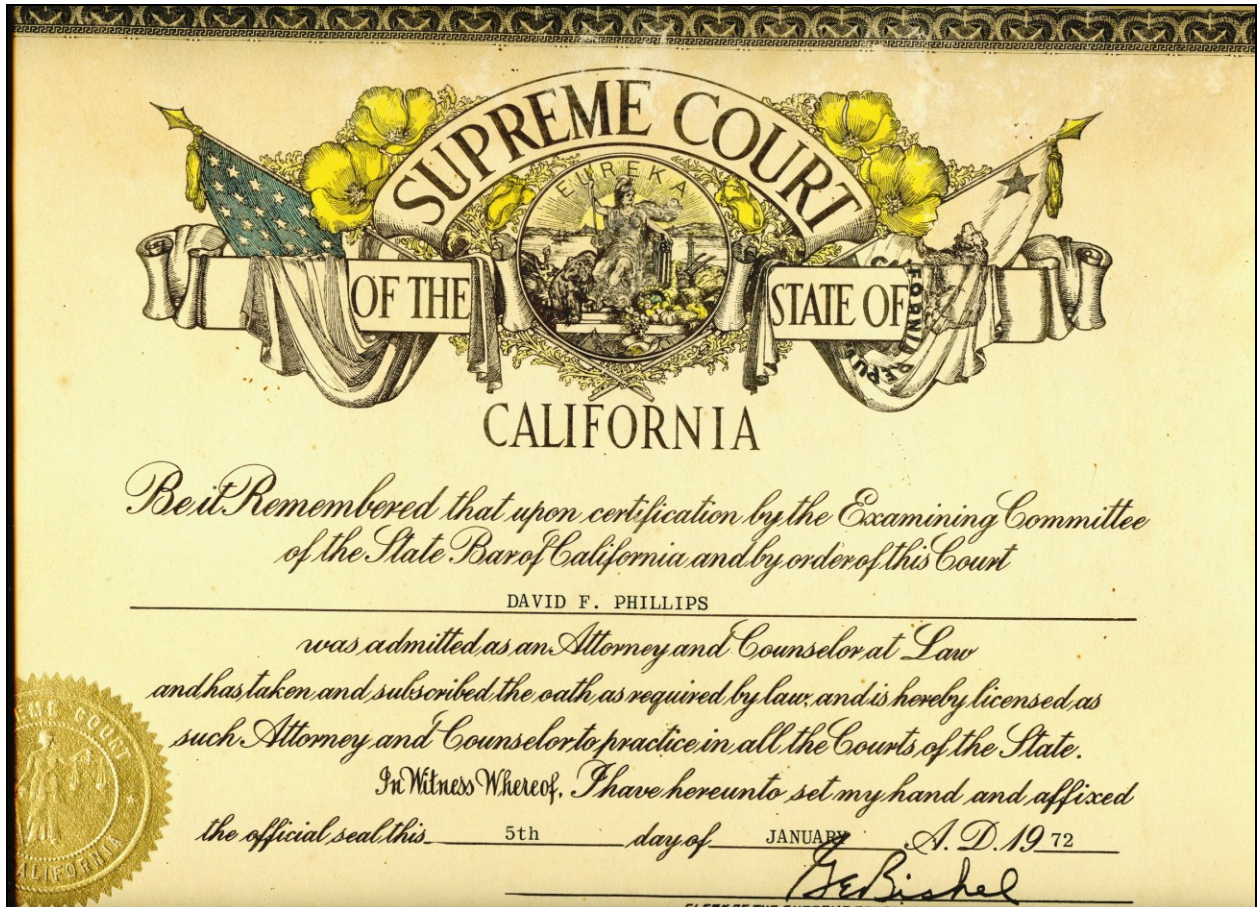 SUPREME COURT
EUREKA
OF THE
STATE OF
CALIFORNIA
Be it Remembered that upon certification by the Examining Committee
of the State Bar of California and by order of this Court
DAVID F. PHILLIPS
was admitted as an Attorney and Counselor at Law
and has taken and subscribed the oath as required by law, and is hereby licensed as
such Attorney and Counselor to practice in all the Courts of the State.
In Witness Whereof, I have hereunto set my hand and affixed
the official seal this 5th day of JANUARY A. D. 19 72
G E Bishel
COURT
CALIFORNIA